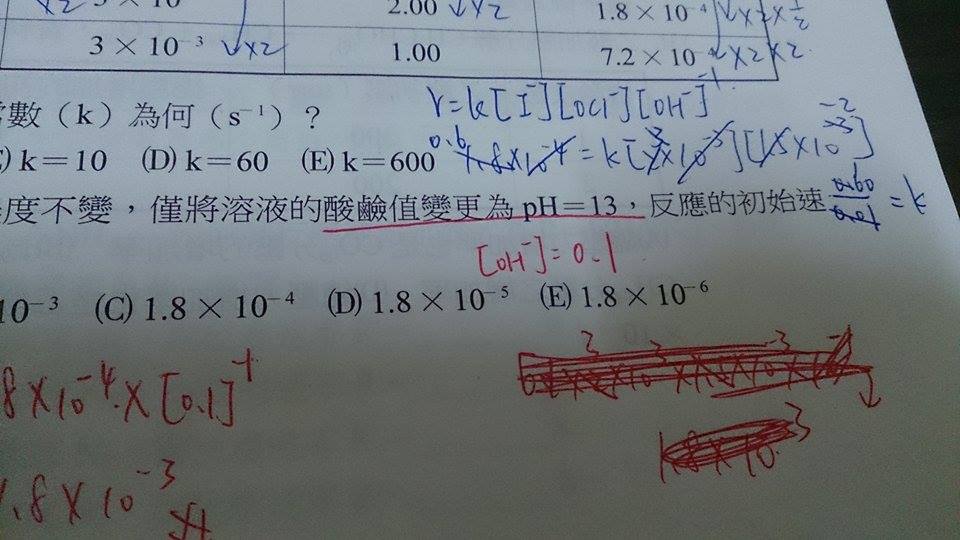 2.00 ↓×2 1.8 × 10⁻⁴ ↓×2×½
3 × 10⁻³ ↓×2 1.00 7.2 × 10⁻⁴ ×2×2
數（k）為何（s⁻¹）？ r=k[I⁻][OCl⁻][OH⁻]⁻¹
k＝10 (D) k＝60 (E) k＝600
度不變，僅將溶液的酸鹼值變更為 pH＝13，反應的初始速 = k
[OH⁻]=0.1
10⁻³ (C) 1.8 × 10⁻⁴ (D) 1.8 × 10⁻⁵ (E) 1.8 × 10⁻⁶
8×10⁻⁴×[0.1]⁻¹
1.8×10⁻³